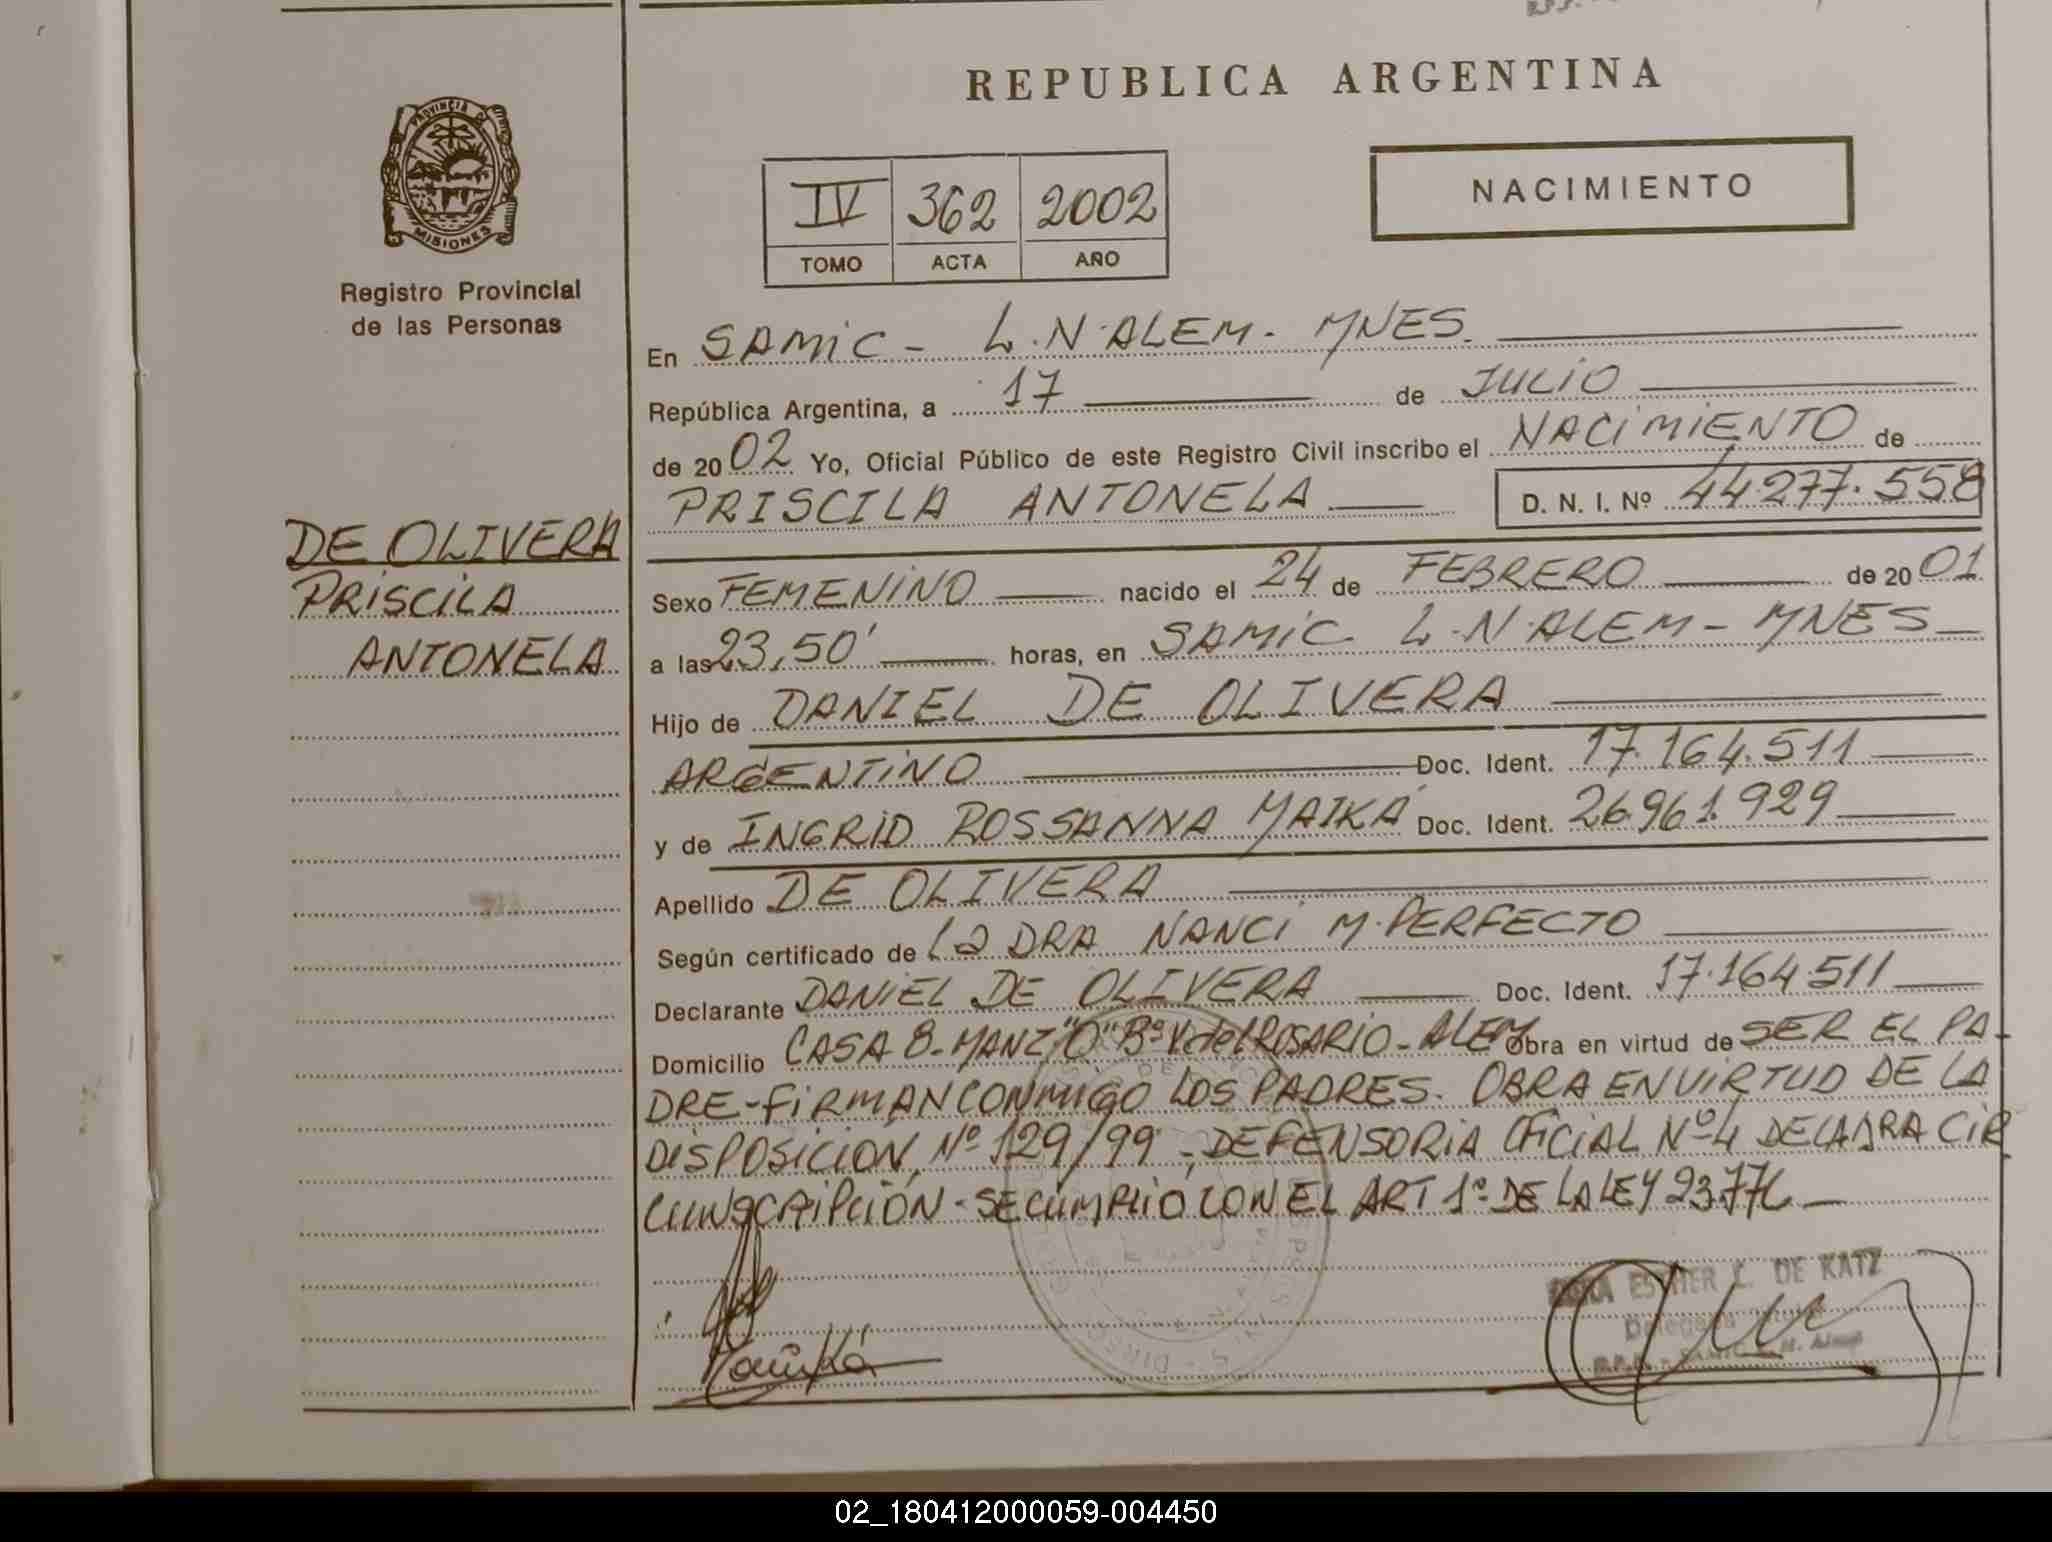 REPUBLICA ARGENTINA
PROVINCIA DE
MISIONES
Registro Provincial
de las Personas
IV 362 2002
TOMO ACTA AÑO
NACIMIENTO
En SAMIC - L.N.ALEM - MNES.
República Argentina, a 17 de JULIO
de 2002 Yo, Oficial Público de este Registro Civil inscribo el NACIMIENTO de
PRISCILA ANTONELA D. N. I. Nº 44.277.558
DE OLIVERA
PRISCILA
ANTONELA
Sexo FEMENINO nacido el 24 de FEBRERO de 2001
a las 23,50' horas, en SAMIC L.N.ALEM - MNES
Hijo de DANIEL DE OLIVERA
ARGENTINO Doc. Ident. 17.164.511
y de INGRID ROSSANNA MAIKA Doc. Ident. 26.961.929
Apellido DE OLIVERA
Según certificado de La DRA NANCI M. PERFECTO
Declarante DANIEL DE OLIVERA Doc. Ident. 17.164.511
Domicilio CASA 8-MANZ "O" Bº V. del ROSARIO - ALEM Obra en virtud de SER EL PA-
DRE-FIRMAN CONMIGO LOS PADRES. OBRA EN VIRTUD DE LA
DISPOSICION Nº 129/99 - DEFENSORIA OFICIAL Nº 4 DE LA 1RA CIR
CUNSCRIPCIÓN - SE CUMPLIO CON EL ART 1º DE LA LEY 23.776
ESTHER L. DE KATZ
02_180412000059-004450